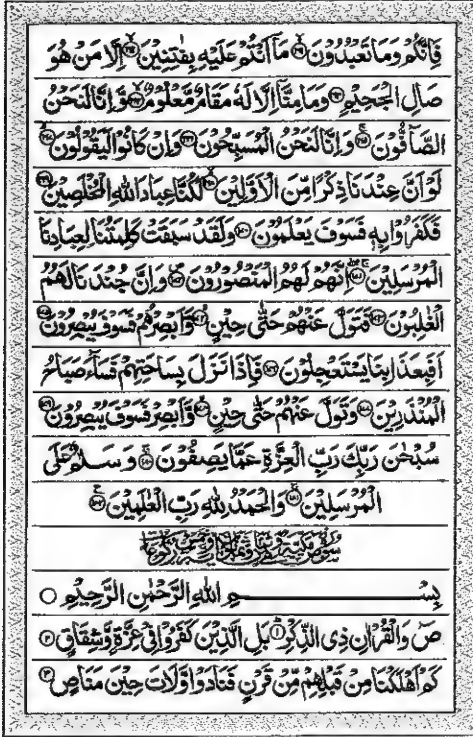 فَاِنَّكُمْ وَمَا تَعْبُدُوْنَ ۝ مَاۤ اَنْتُمْ عَلَيْهِ بِفٰتِنِيْنَ ۝ اِلَّا مَنْ هُوَ
صَالِ الْجَحِيْمِ ۝ وَمَا مِنَّاۤ اِلَّا لَهٗ مَقَامٌ مَّعْلُوْمٌ ۝ وَّاِنَّا لَنَحْنُ
الصَّآفُّوْنَ ۝ وَاِنَّا لَنَحْنُ الْمُسَبِّحُوْنَ ۝ وَاِنْ كَانُوْا لَيَقُوْلُوْنَ ۝
لَوْ اَنَّ عِنْدَنَا ذِكْرًا مِّنَ الْاَوَّلِيْنَ ۝ لَكُنَّا عِبَادَ اللّٰهِ الْمُخْلَصِيْنَ ۝
فَكَفَرُوْا بِهٖ فَسَوْفَ يَعْلَمُوْنَ ۝ وَلَقَدْ سَبَقَتْ كَلِمَتُنَا لِعِبَادِنَا
الْمُرْسَلِيْنَ ۝ اِنَّهُمْ لَهُمُ الْمَنْصُوْرُوْنَ ۝ وَاِنَّ جُنْدَنَا لَهُمُ
الْغٰلِبُوْنَ ۝ فَتَوَلَّ عَنْهُمْ حَتّٰى حِيْنٍ ۝ وَّاَبْصِرْهُمْ فَسَوْفَ يُبْصِرُوْنَ ۝
اَفَبِعَذَابِنَا يَسْتَعْجِلُوْنَ ۝ فَاِذَا نَزَلَ بِسَاحَتِهِمْ فَسَآءَ صَبَاحُ
الْمُنْذَرِيْنَ ۝ وَتَوَلَّ عَنْهُمْ حَتّٰى حِيْنٍ ۝ وَّاَبْصِرْ فَسَوْفَ يُبْصِرُوْنَ ۝
سُبْحٰنَ رَبِّكَ رَبِّ الْعِزَّةِ عَمَّا يَصِفُوْنَ ۝ وَسَلٰمٌ عَلَى
الْمُرْسَلِيْنَ ۝ وَالْحَمْدُ لِلّٰهِ رَبِّ الْعٰلَمِيْنَ ۝
بِسْمِ اللّٰهِ الرَّحْمٰنِ الرَّحِيْمِ ۝
صٓ وَالْقُرْاٰنِ ذِى الذِّكْرِ ۝ بَلِ الَّذِيْنَ كَفَرُوْا فِيْ عِزَّةٍ وَّشِقَاقٍ ۝
كَمْ اَهْلَكْنَا مِنْ قَبْلِهِمْ مِّنْ قَرْنٍ فَنَادَوْا وَّلَاتَ حِيْنَ مَنَاصٍ ۝